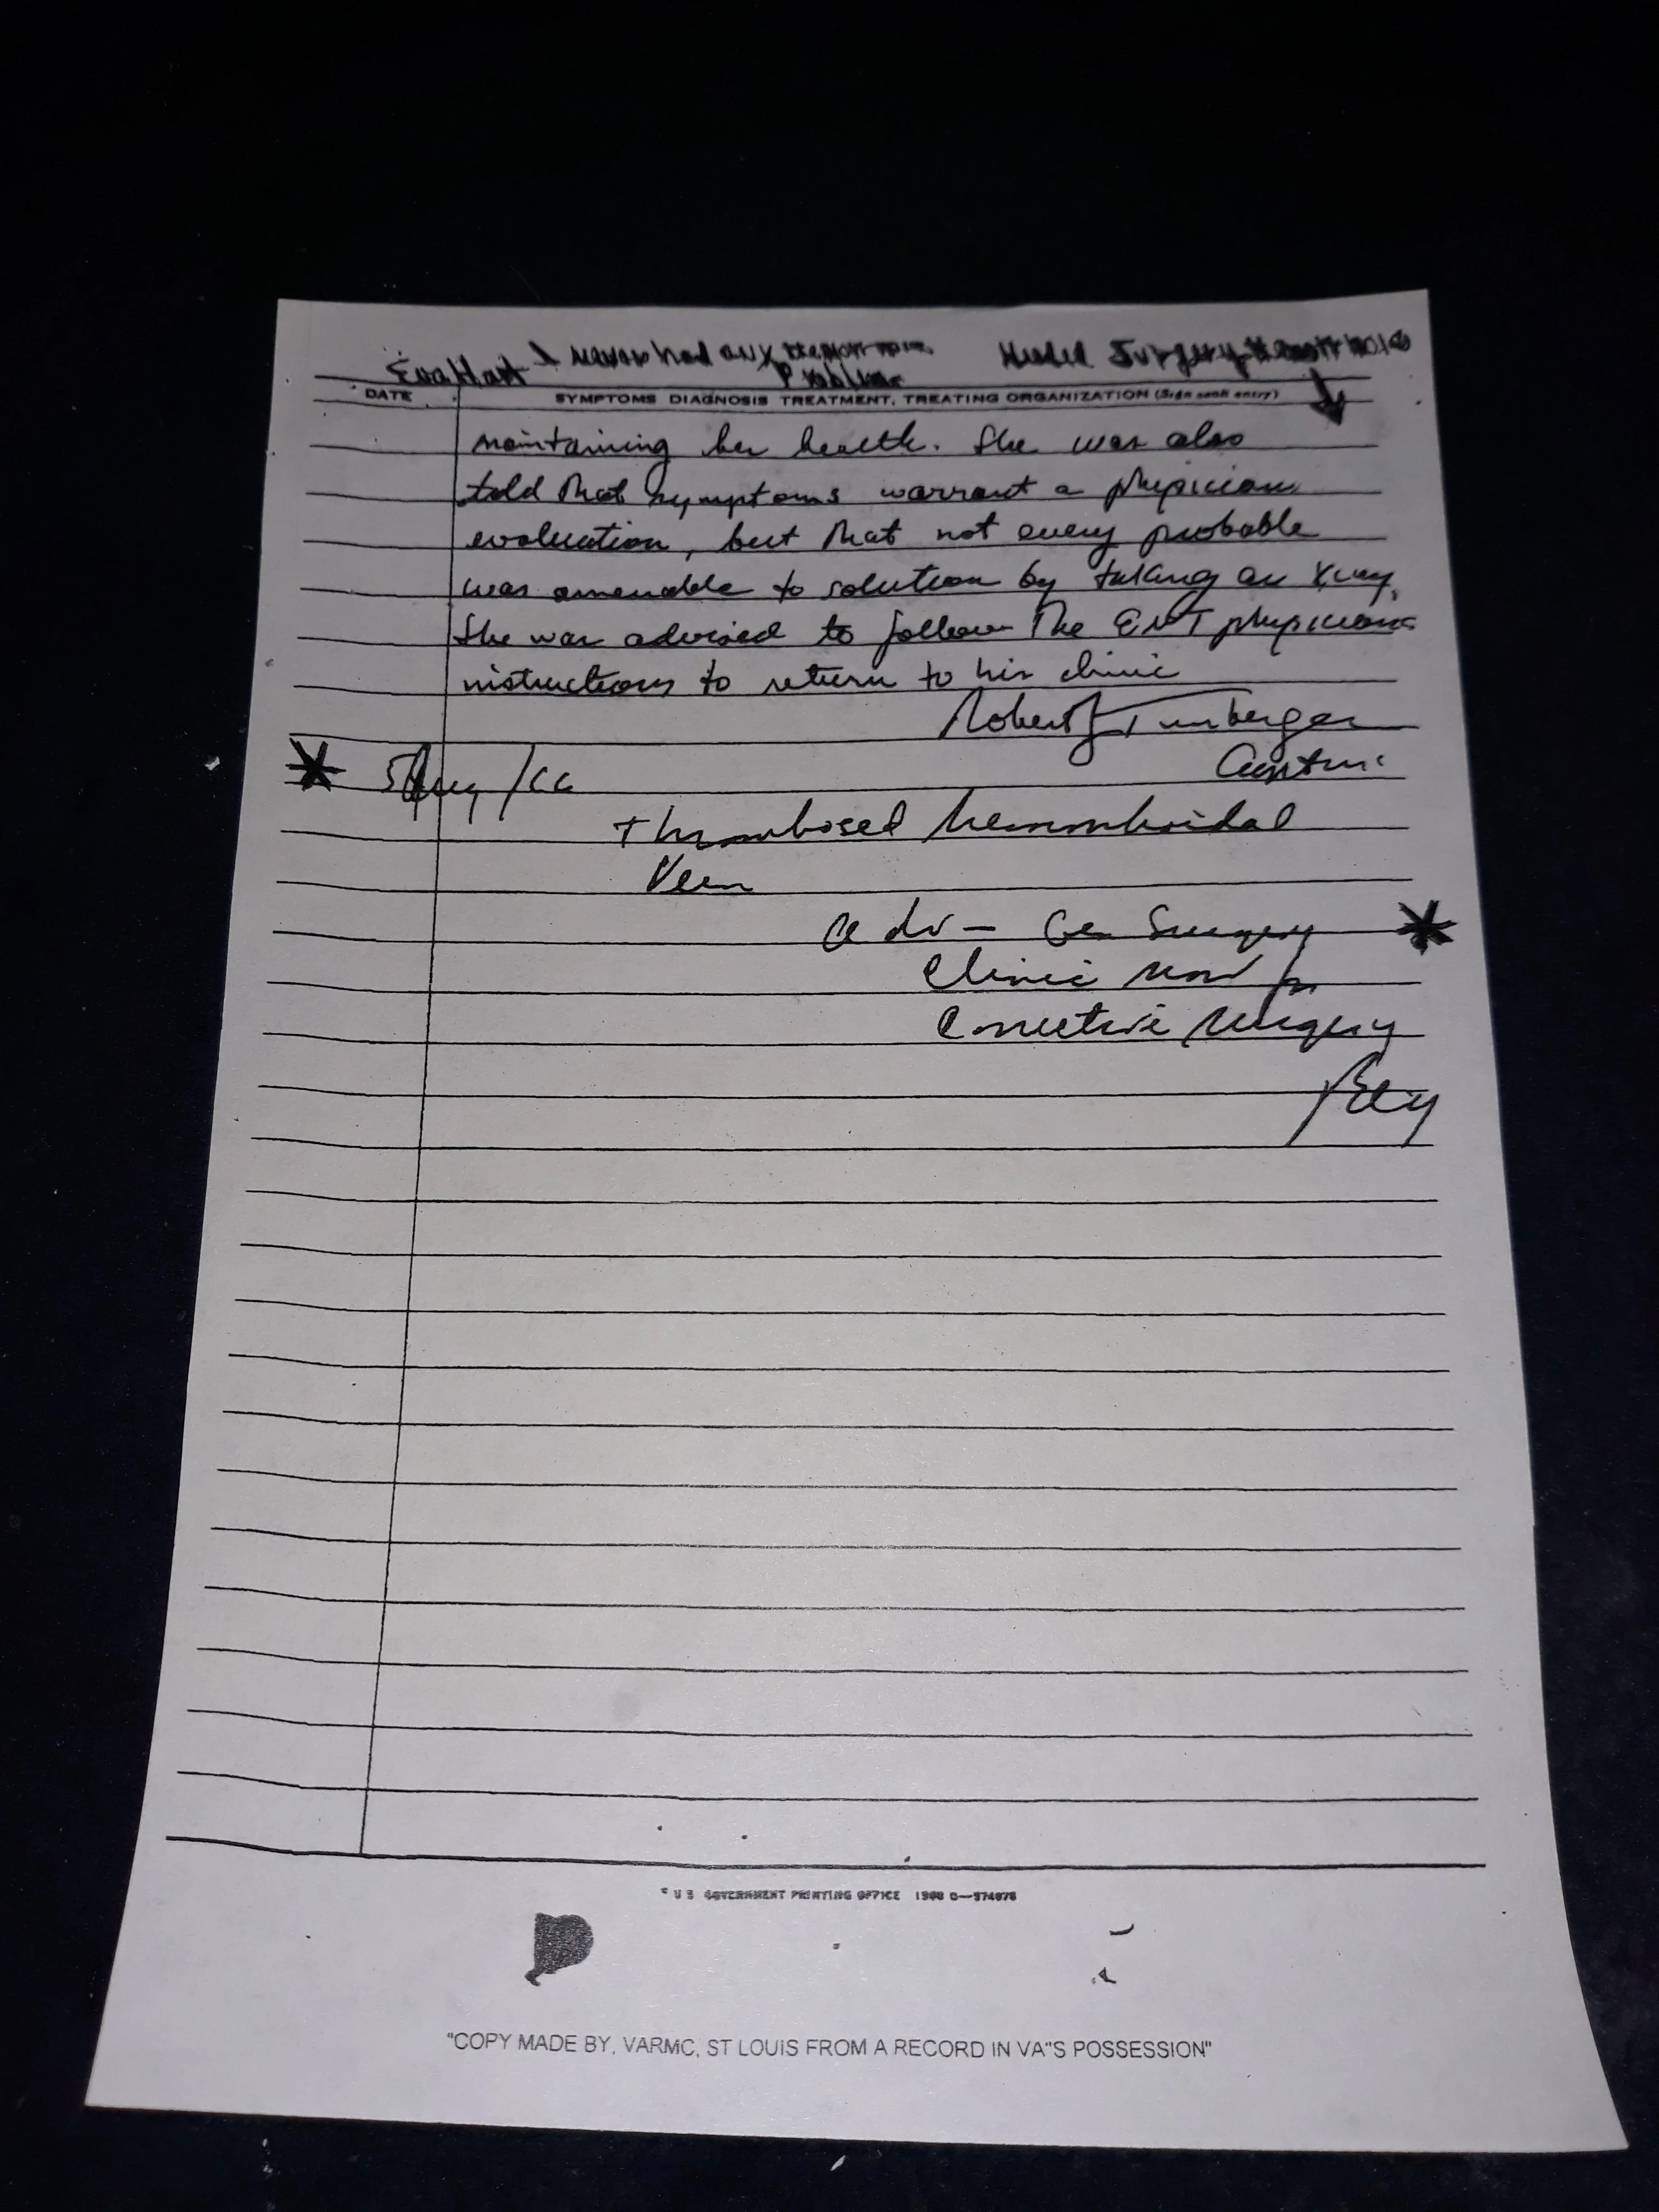 Eva Hart I never had any Hemorrhoid Needed Surgery Hemorrhoid
Problems
DATE SYMPTOMS DIAGNOSIS TREATMENT, TREATING ORGANIZATION (Sign each entry)
maintaining her health. She was also
told that symptoms warrant a physician
evaluation, but that not every probable
was amenable to solution by taking an Xray.
She was advised to follow the ENT physicians
instructions to return to his clinic
Robert
Thrombosed hemorrhoidal
Vein
adv - Gen Surgery
Clinic now for
Corrective surgery
U S GOVERNMENT PRINTING OFFICE
"COPY MADE BY, VARMC, ST LOUIS FROM A RECORD IN VA"S POSSESSION"